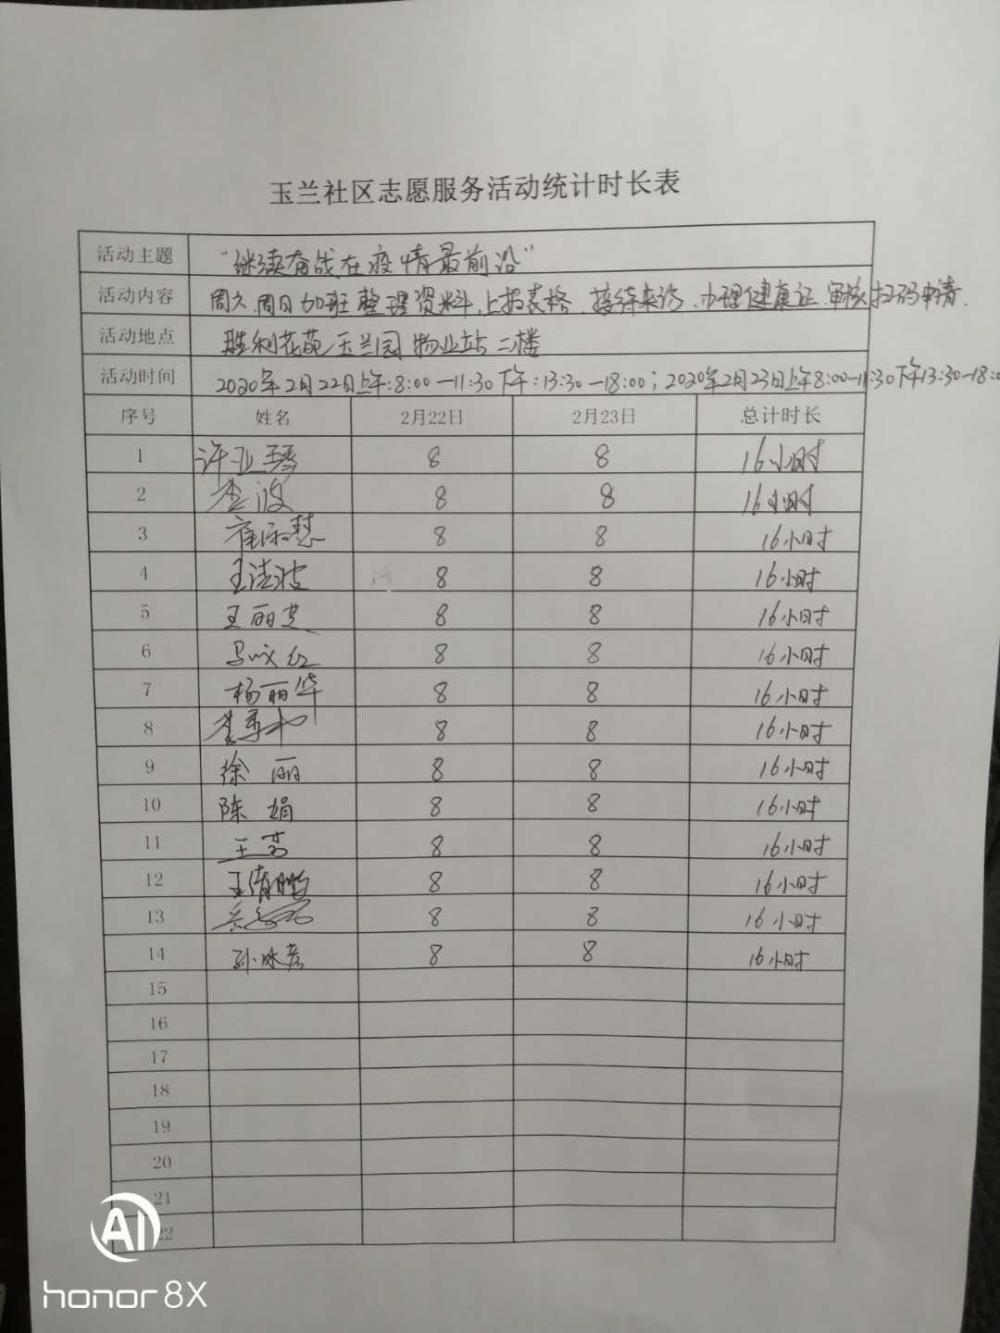 玉兰社区志愿服务活动统计时长表
活动主题 "继续奋战在疫情最前沿"
活动内容 周六.周日加班整理资料.上报表格.接待来访.办理健康证.审核扫码申请.
活动地点 胜利花苑/玉兰园物业站二楼
活动时间 2020年2月22日上午:8:00-11:30下午:13:30-18:00;2020年2月23日上午8:00-11:30下午13:30-18:00
序号 姓名 2月22日 2月23日 总计时长
1 许亚琴 8 8 16小时
2 李波 8 8 16小时
3 8 8 16小时
4 王洁波 8 8 16小时
5 王丽芝 8 8 16小时
6 8 8 16小时
7 杨丽华 8 8 16小时
8 8 8 16小时
9 徐丽 8 8 16小时
10 陈娟 8 8 16小时
11 8 8 16小时
12 王倩鹏 8 8 16小时
13 8 8 16小时
14 孙冰彦 8 8 16小时
15
16
17
18
19
20
21
22
AI
honor 8X